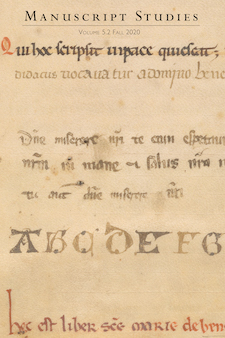 MANUSCRIPT STUDIES
VOLUME 5.2 FALL 2020
Qui hoc scripsit in pace quiescat
didacus vocavatur a domino bene
Dñe miserere nři te cum
in mane & salus nřa
tu aut dñe miserere nři
ABCDEFG
hec est liber sce marie de ben